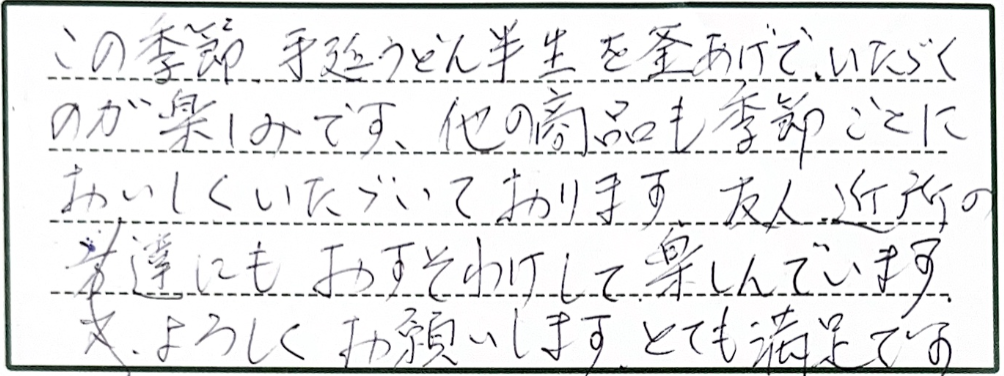 この季節、手延うどん半生を釜あげで、いただく
のが楽しみです、他の商品も季節ごとに
おいしくいただいております、友人、近所の
達にもおすそわけして、楽しんでいます、
よろしくお願いします、とても満足です